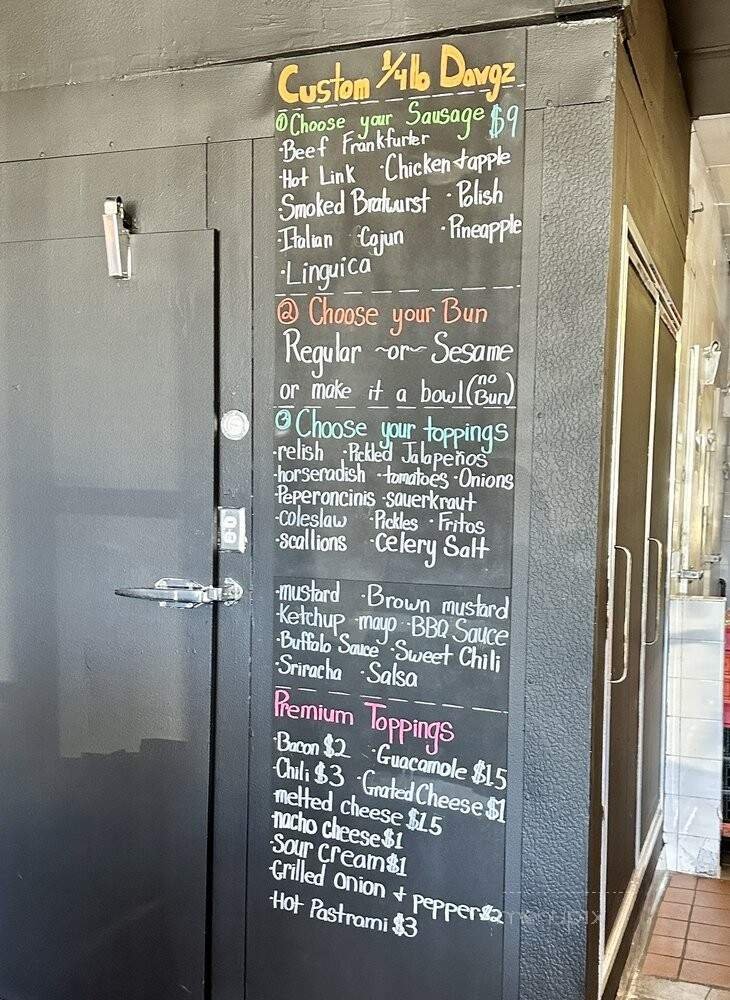 Custom 1/4lb Dawgz
① Choose your Sausage $9
·Beef Frankfurter
·Hot Link ·Chicken+apple
·Smoked Bratwurst ·Polish
·Italian ·Cajun ·Pineapple
·Linguica
② Choose your Bun
Regular ~or~ Sesame
or make it a bowl (no Bun)
③ Choose your toppings
·relish ·Pickled Jalapeños
·horseradish ·tomatoes ·Onions
·Peperoncinis ·sauerkraut
·coleslaw ·Pickles ·Fritos
·scallions ·Celery Salt
·mustard ·Brown mustard
·Ketchup ·mayo ·BBQ Sauce
·Buffalo Sauce ·Sweet Chili
·Sriracha ·Salsa
Premium Toppings
·Bacon $2 ·Guacamole $1.5
·Chili $3 ·Grated Cheese $1
·melted cheese $1.5
·nacho cheese $1
·Sour Cream $1
·Grilled onion + peppers $2
·Hot Pastrami $3